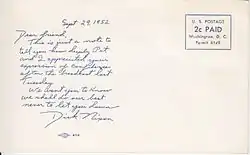 Sept 29, 1952
Dear friend,
This is just a note to
tell you how deeply Pat
and I appreciated your
expression of confidence
after the broadcast last
Tuesday.
We want you to know
we shall do our best
never to let you down
Dick Nixon
U. S. POSTAGE
2c PAID
Washington, D. C.
Permit